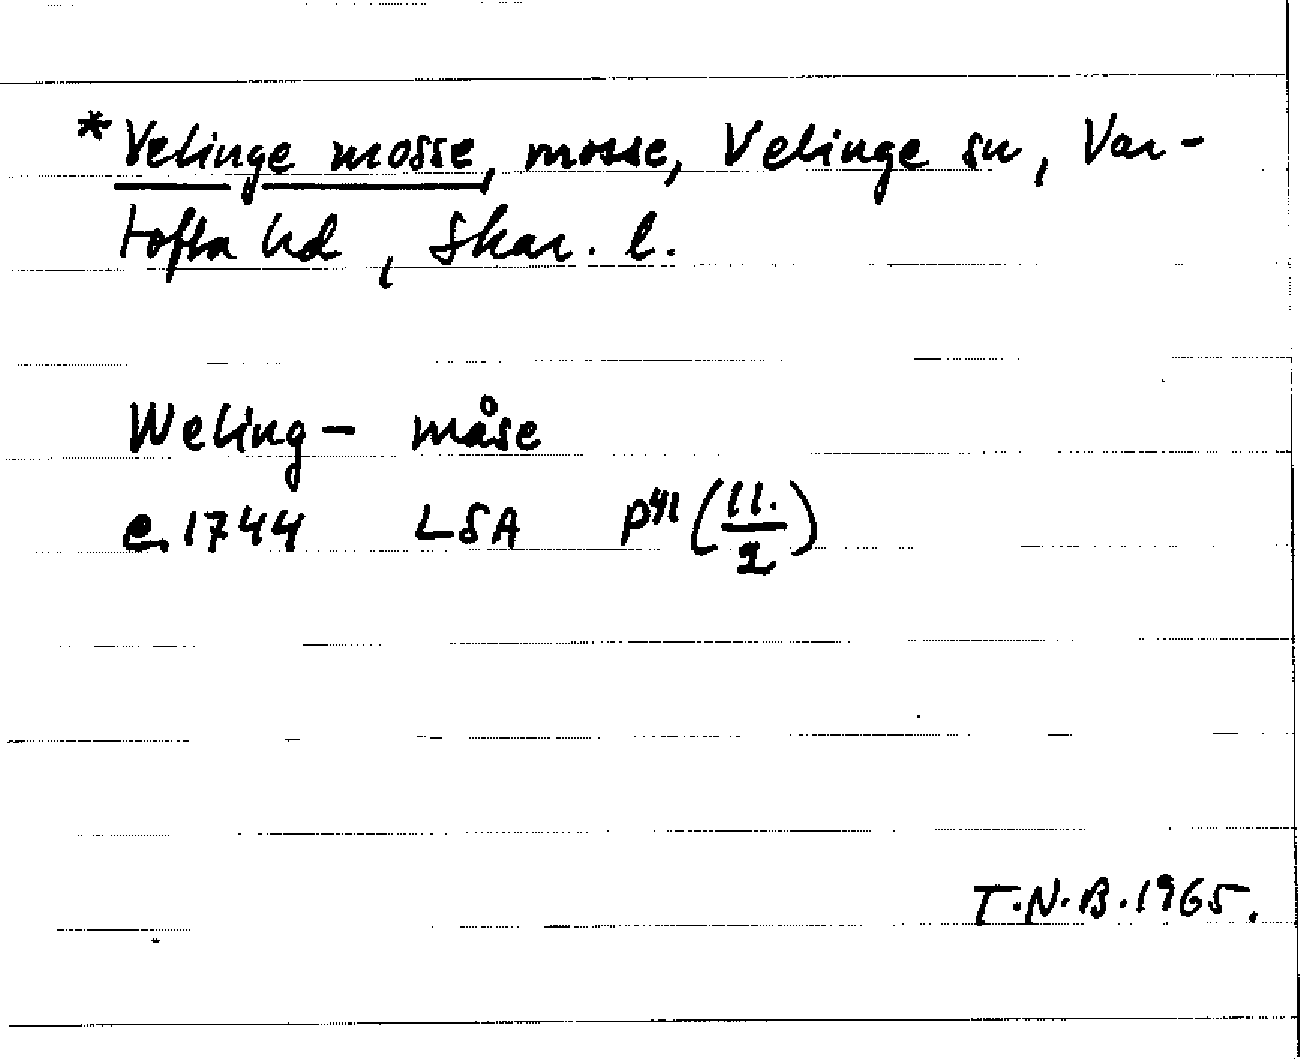 *Velinge mosse, mosse, Velinge sn, Var-
tofta hd, Skar. l.
Weling- måse
c. 1744 LSA P41 (11./2)
T.N.B. 1965.